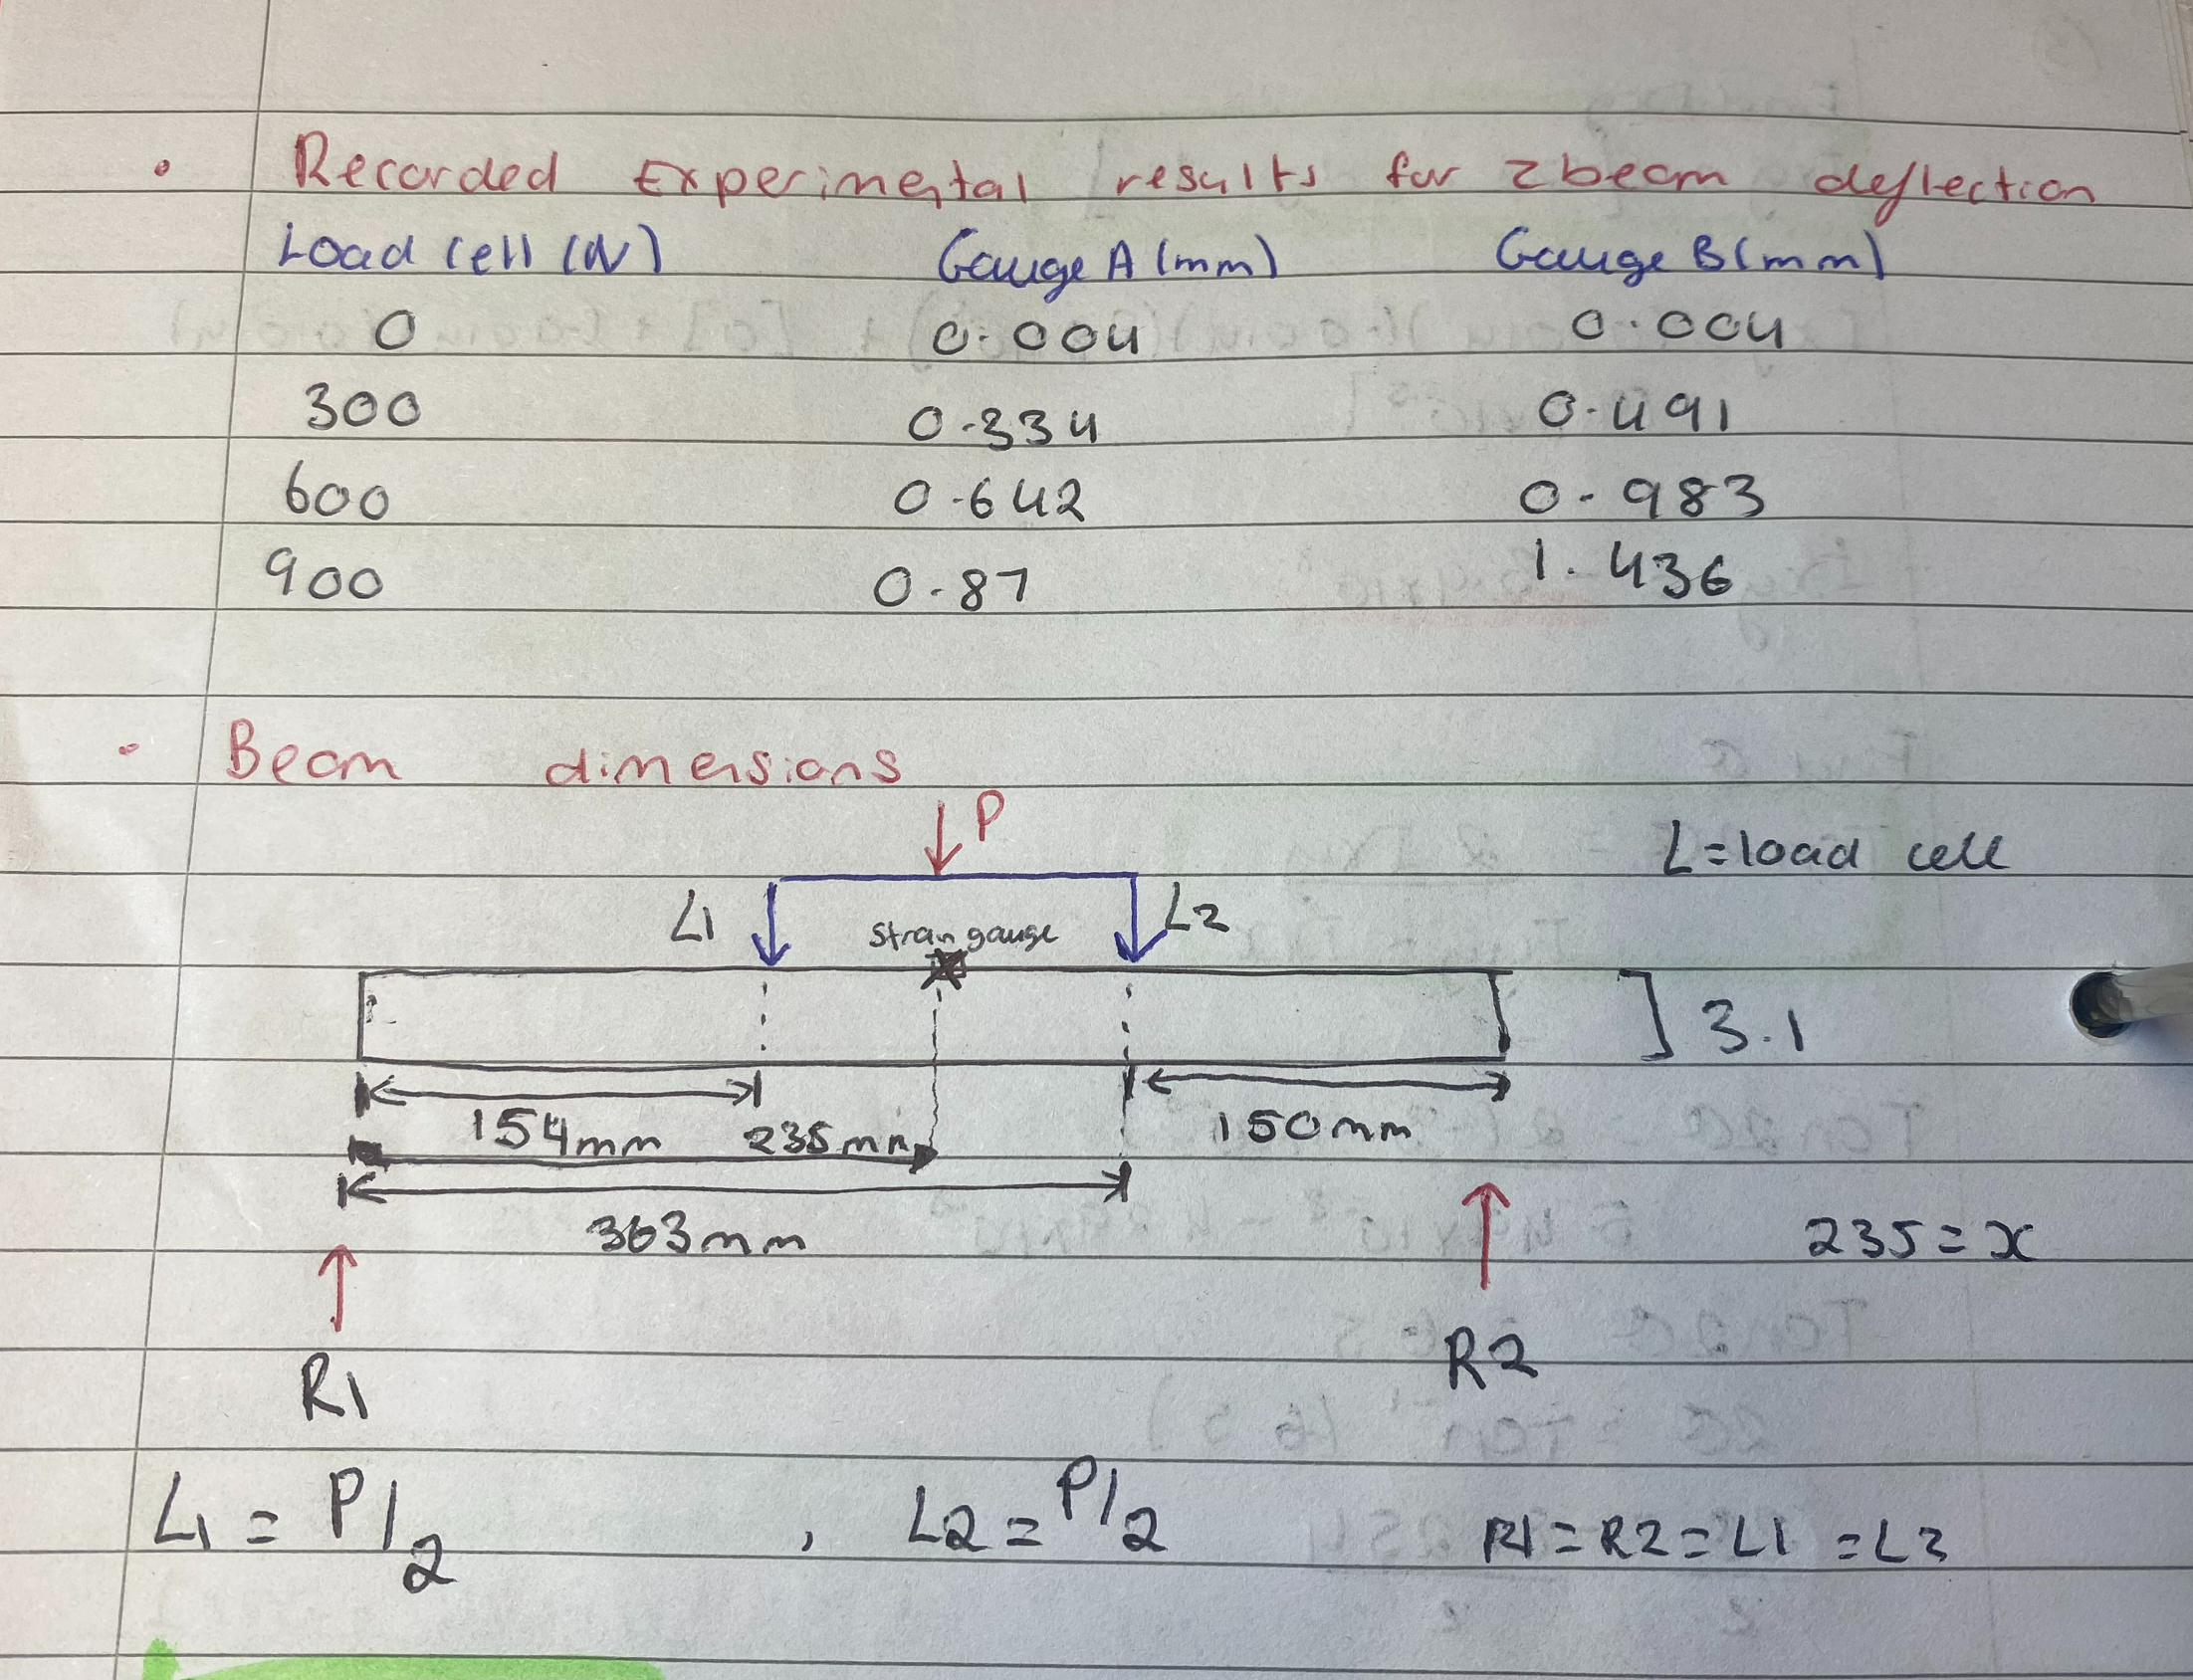 • Recorded Experimental results for z beam deflection
Load cell (N) Gauge A (mm) Gauge B (mm)
0 0.004 0.004
300 0.334 0.491
600 0.642 0.983
900 0.87 1.436
• Beam dimensions
P
L = load cell
L1 L2
strain gauge
3.1
154mm 235mm 150mm
363mm
235 = x
R1 R2
L1 = P/2 , L2 = P/2 R1 = R2 = L1 = L2